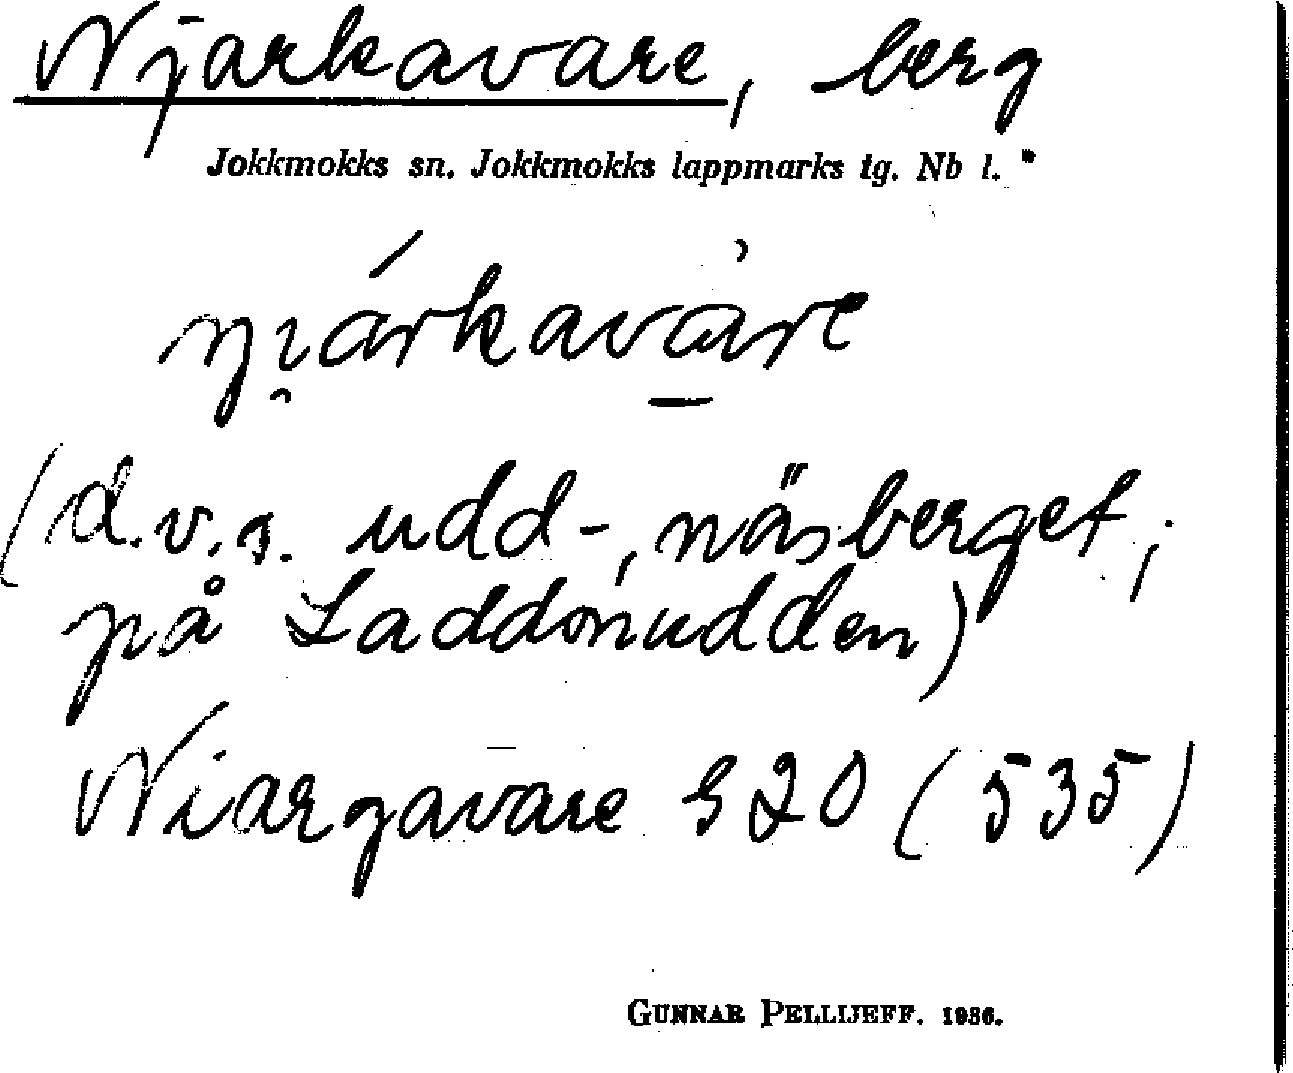 Njarkavare, berg
Jokkmokks sn. Jokkmokks lappmarks tg. Nb l.
(d.v.s. udd-, näsberget,
på Laddonudden)
Niargavare S20 (535)
GUNNAR PELLIJEFF. 1936.